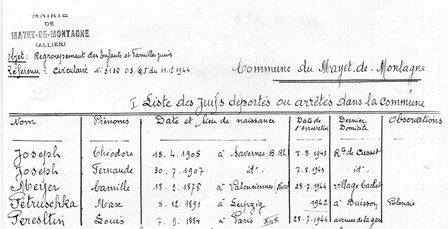 MAIRIE
DE
MAYET-DE-MONTAGNE
(ALLIER)
Objet: Regroupement des Enfants et Familles juives
Référence: Circulaire N° 3136 DS/95 du 11.12.1944
Commune du Mayet-de-Montagne
I Liste des Juifs déportés ou arrêtés dans la commune
Nom Prénoms Date et lieu de naissance Date de l'Arrestation Dernier Domicile Observations
Joseph Théodore 15.4.1905 à Saverne 7.8.1943 Rte de Cusset
Joseph Fernande 30.7.1907 id° 7.8.1943 id°
Meyer Camille 18.2.1876 à Valenciennes 28.7.1944 village
Petruschka Max 5.12.1891 à Leipzig 1942 à Buisson Polonais
Louis 7.9.1884 à Paris 28.7.1944 avenue de la gare